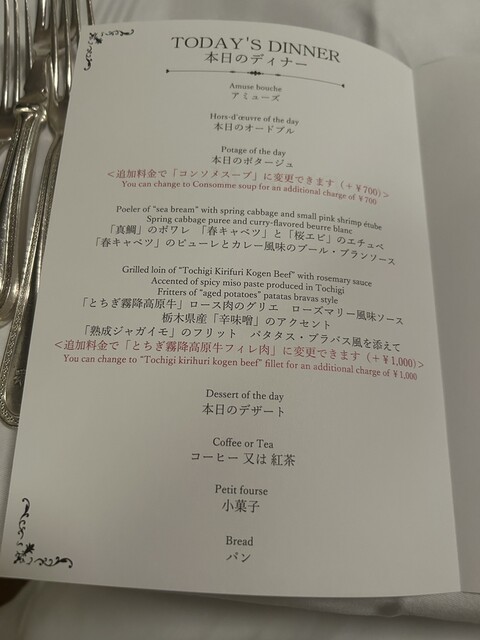 TODAY'S DINNER
本日のディナー
Amuse bouche
アミューズ
Hors-d'œuvre of the day
本日のオードブル
Potage of the day
本日のポタージュ
<追加料金で「コンソメスープ」に変更できます（+￥700)>
You can change to Consomme soup for an additional charge of ￥700
Poeler of "sea bream" with spring cabbage and small pink shrimp étube
Spring cabbage puree and curry-flavored beurre blanc
「真鯛」のポワレ 「春キャベツ」と「桜エビ」のエチュベ
「春キャベツ」のピューレとカレー風味のブール・ブランソース
Grilled loin of "Tochigi Kirifuri Kogen Beef" with rosemary sauce
Accented of spicy miso paste produced in Tochigi
Fritters of "aged potatoes" patatas bravas style
「とちぎ霧降高原牛」ロース肉のグリエ ローズマリー風味ソース
栃木県産「辛味噌」のアクセント
「熟成ジャガイモ」のフリット パタタス・ブラバス風を添えて
<追加料金で「とちぎ霧降高原牛フィレ肉」に変更できます（+￥1,000)>
You can change to "Tochigi kirihuri kogen beef" fillet for an additional charge of ￥1,000
Dessert of the day
本日のデザート
Coffee or Tea
コーヒー 又は 紅茶
Petit fourse
小菓子
Bread
パン